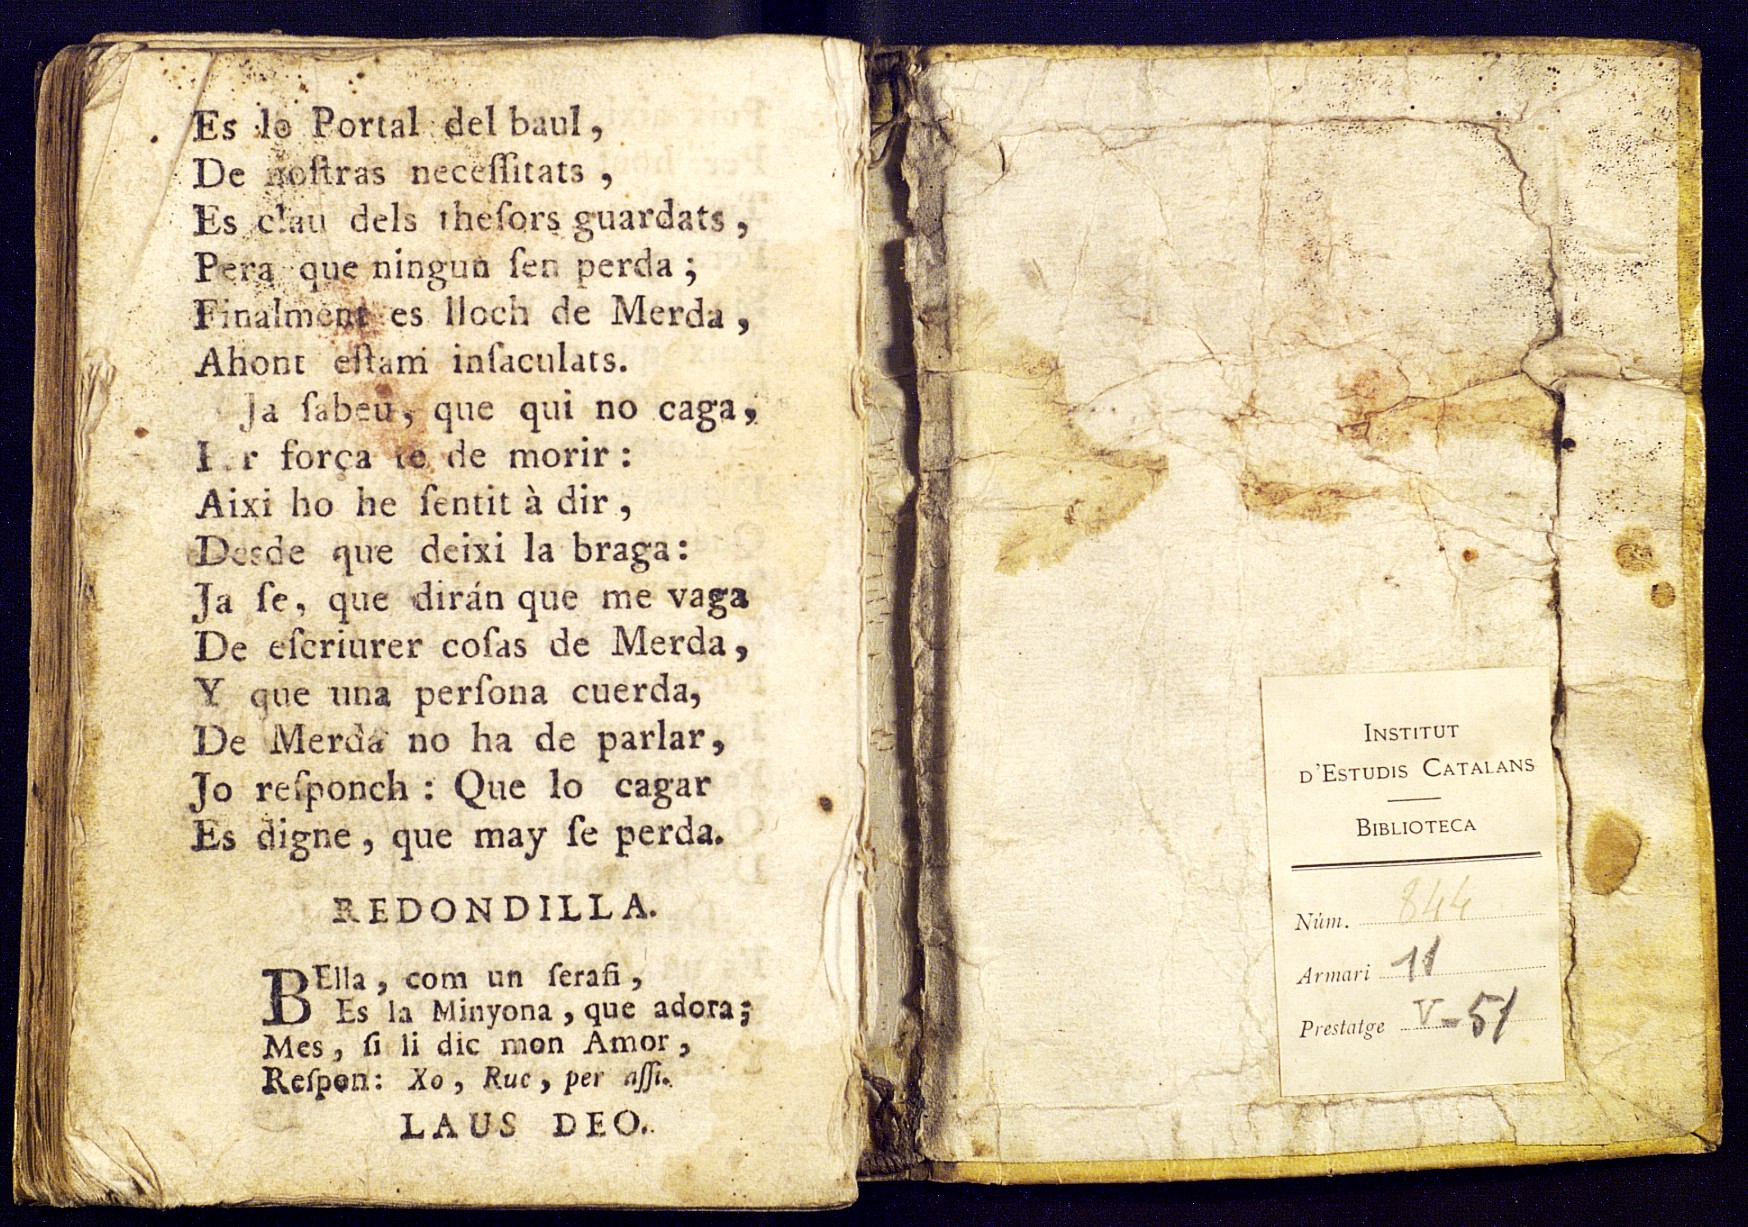 Es lo Portal del baul,
De noſtras neceſſitats,
Es clau dels theſors guardats,
Pera que ningun ſen perda;
Finalment es lloch de Merda,
Ahont eſtam inſaculats.
Ja ſabeu, que qui no caga,
Per força te de morir:
Aixi ho he ſentit à dir,
Desde que deixi la braga:
Ja ſe, que dirán que me vaga
De eſcriurer coſas de Merda,
Y que una perſona cuerda,
De Merda no ha de parlar,
Jo reſponch: Que lo cagar
Es digne, que may ſe perda.
REDONDILLA.
BElla, com un ſerafi,
Es la Minyona, que adora;
Mes, ſi li dic mon Amor,
Reſpon: Xo, Ruc, per aſſi.
LAUS DEO.
INSTITUT
D'ESTUDIS CATALANS
BIBLIOTECA
Núm. 844
Armari 11
Prestatge V-51